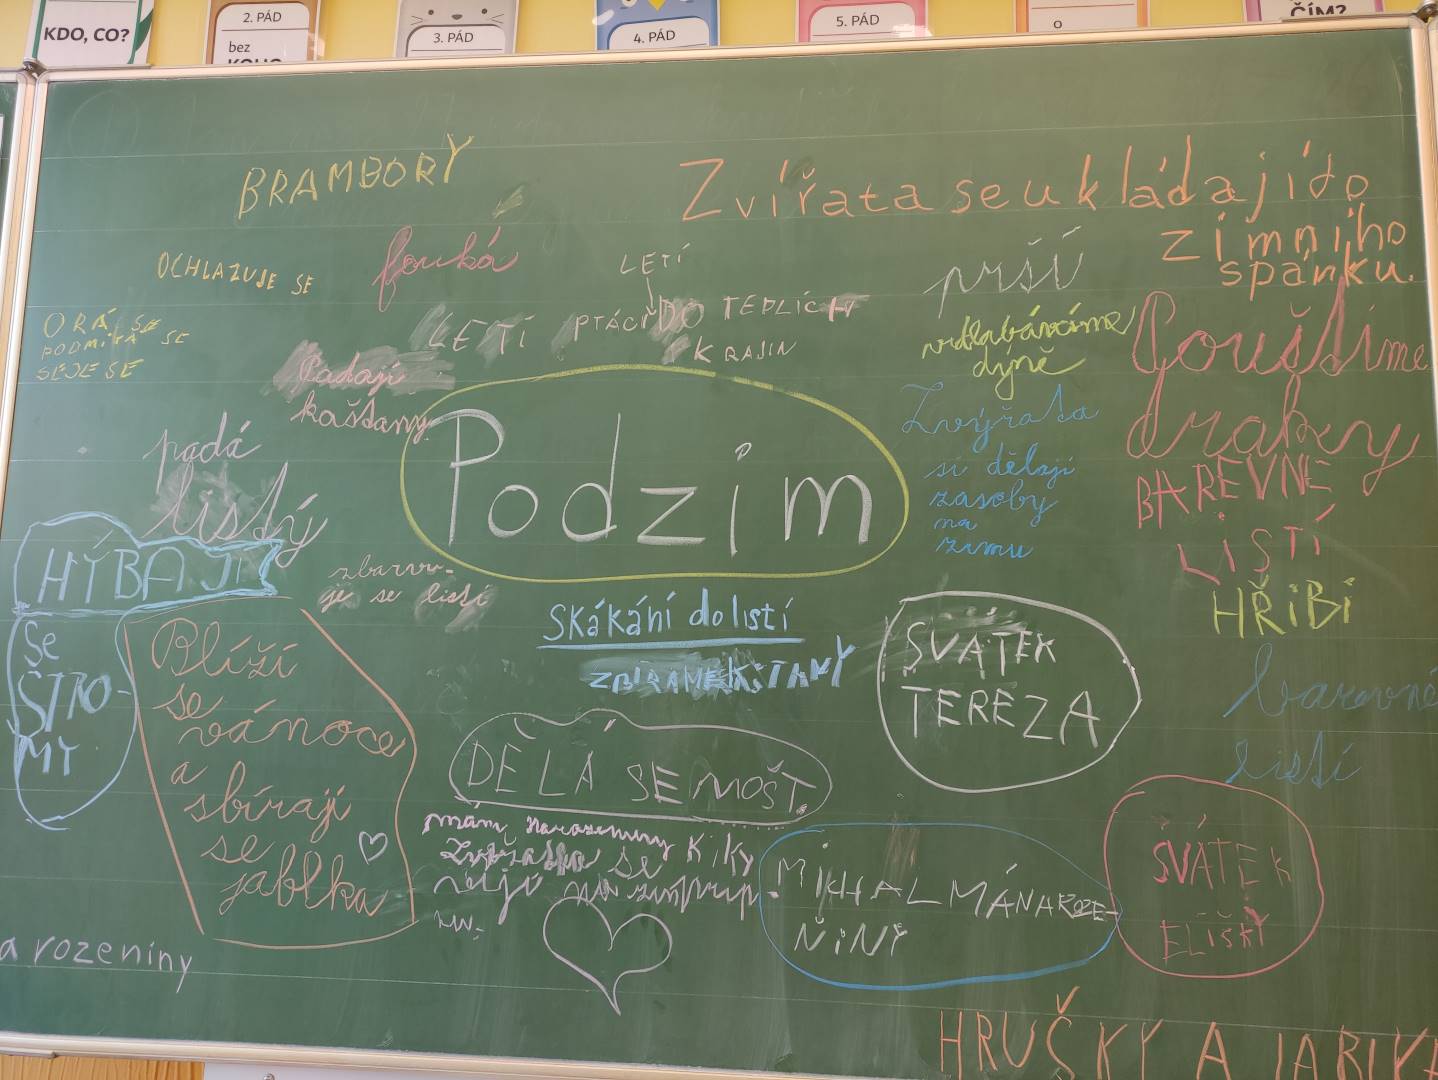 KDO, CO?
2. PÁD
bez
KOHO
3. PÁD
4. PÁD
5. PÁD
o
ČÍM?
BRAMBORY
Zvířata se ukládají do
zimního
spánku.
OCHLAZUJE SE
fouká
LETÍ
LETÍ PTÁCI DO TEPLÍCH
KRAJIN
prší
vydlabáváme
dýně
Pouštíme
draky
ORÁ SE
PODMÍTÁ SE
SEJE SE
Padají
kaštany
padá
listý
Podzim
Zvýřata
si dělají
zasoby
na
zimu
BAREVNÉ
LISTÍ
HŘiBi
barevné
listí
HÝBAJÍ
SE
STRO-
MY
zbarvu-
je se listí
Skákání do listí
ZBÍRAME KŠTANY
SVÁTEK
TEREZA
Blíží
se
vánoce
a
sbírají
se
jablka
DĚLÁ SE MOŠT.
mám narozeniny Kiky
se
MiKHAL MÁ NAROZE-
NiNY
SVÁTEK
ELIŠKY
a rozeniny
HRUŠKY A JABLK